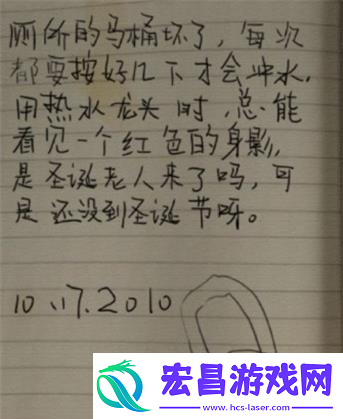 厕所的马桶坏了，每次
都要按好几下才会冲水.
用热水龙头时，总能
看见一个红色的身影，
是圣诞老人来了吗，可
是还没到圣诞节呀。
10.17.2010
宏昌游戏网
www.hcs-laser.com